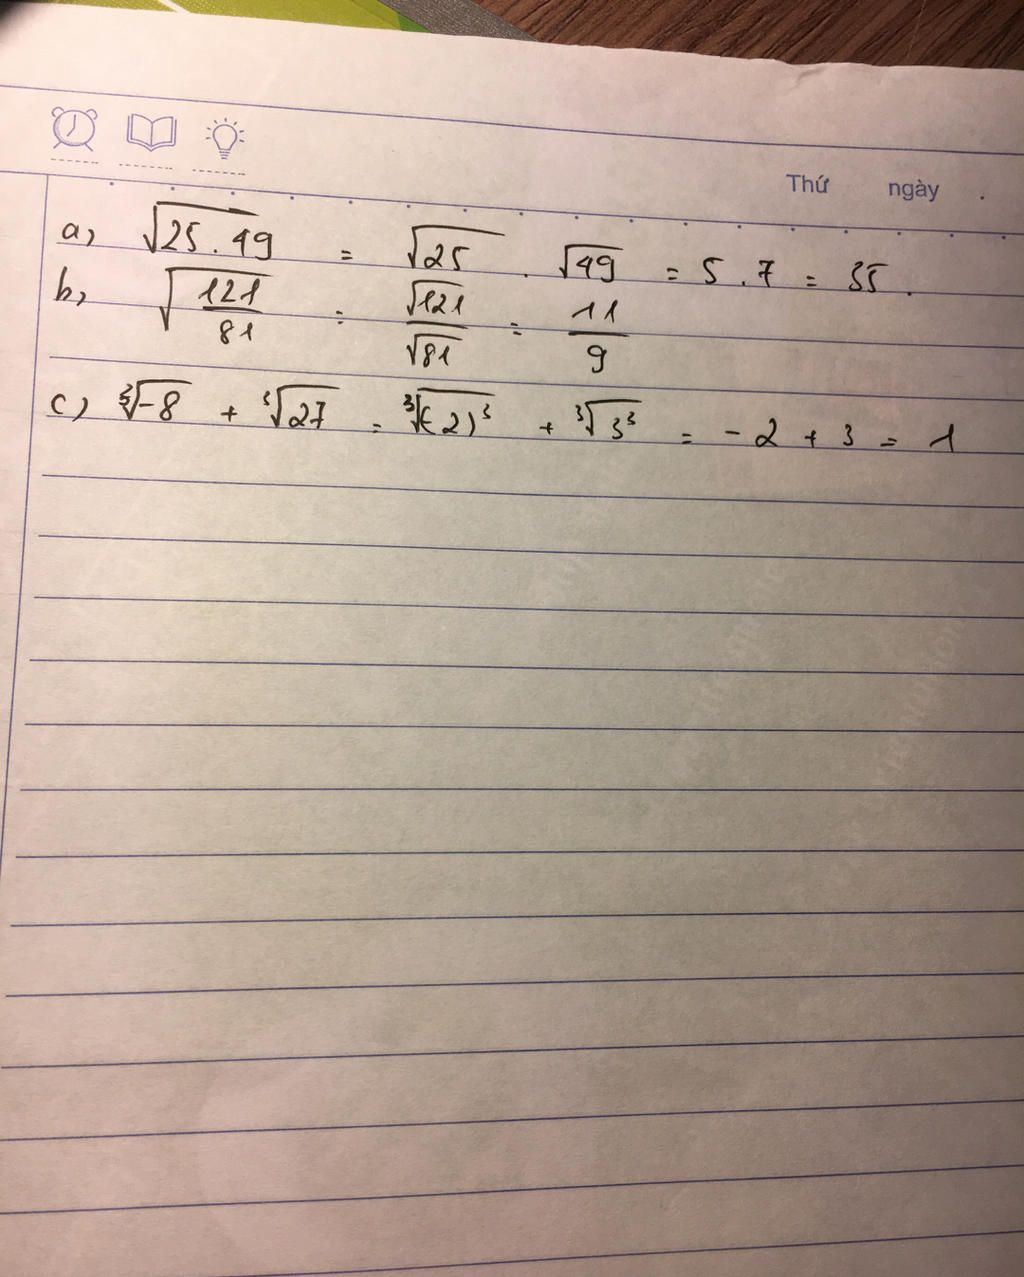 Thứ ngày .
a, √25.49 = √25 . √49 = 5 . 7 = 35 .
b, √(121/81) = √121/√81 = 11/9
c) ∛-8 + ∛27 = ∛(-2)³ + ∛3³ = -2 + 3 = 1